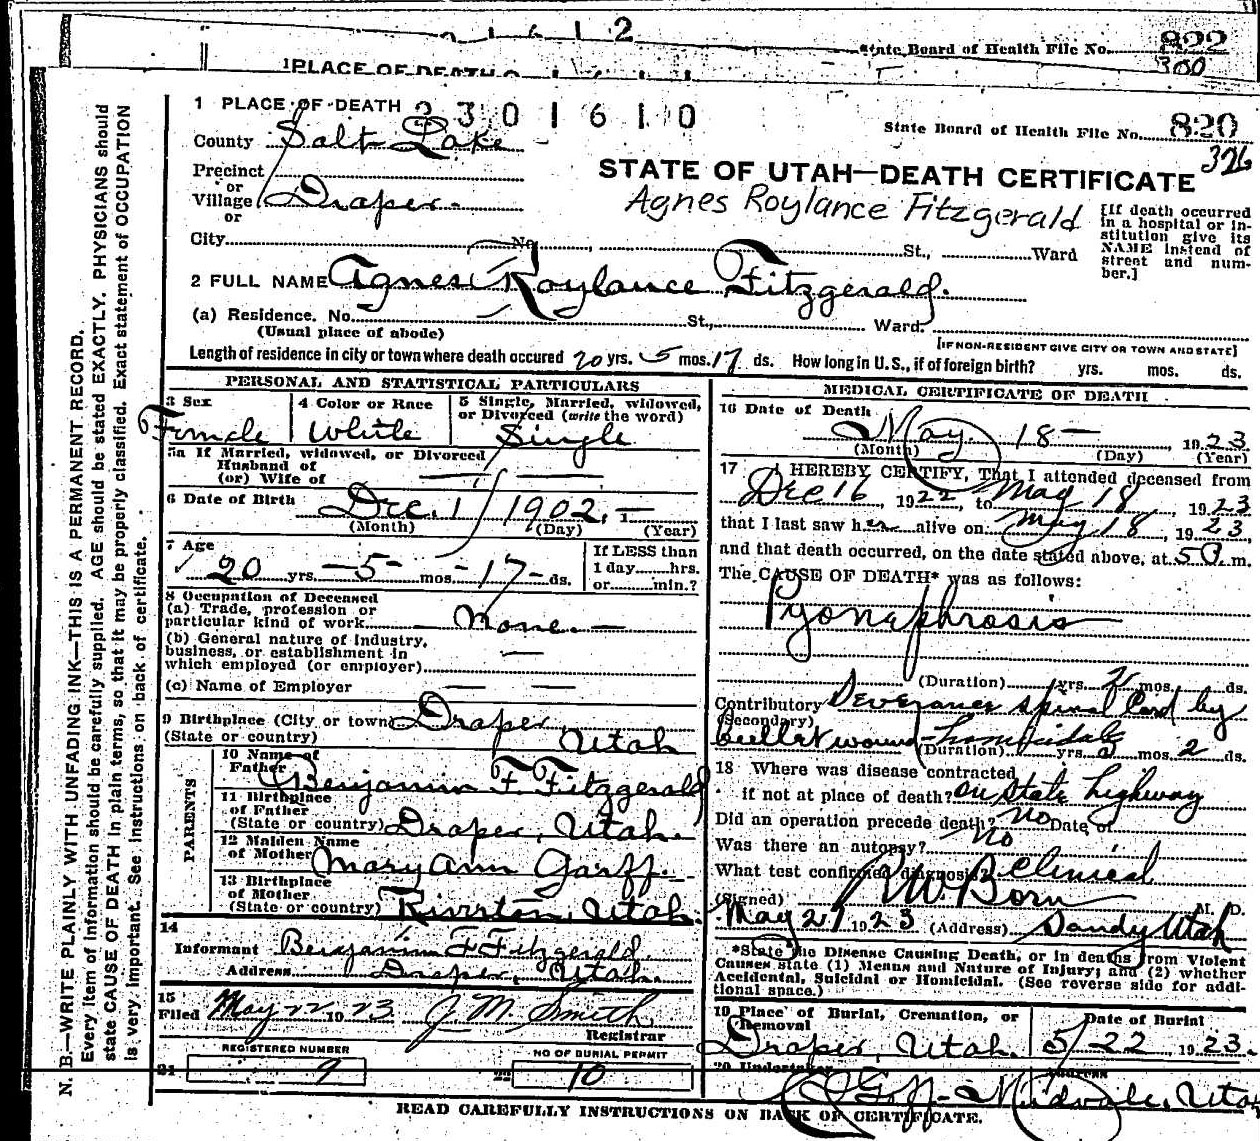 1 6 1 2
State Board of Health File No. 822
300
1 PLACE OF DEATH
1 PLACE OF DEATH 2301610
State Board of Health File No. 820
326
County Salt Lake
STATE OF UTAH—DEATH CERTIFICATE
Precinct
or
Village Draper.
or
Agnes Roylance Fitzgerald
[If death occurred
in a hospital or in-
stitution give its
NAME instead of
street and num-
ber.]
City No. St., Ward
2 FULL NAME Agnes Roylance Fitzgerald.
(a) Residence. No. St., Ward.
(Usual place of abode)
[IF NON-RESIDENT GIVE CITY OR TOWN AND STATE]
Length of residence in city or town where death occured 20 yrs. 5 mos. 17 ds. How long in U.S., if of foreign birth? yrs. mos. ds.
PERSONAL AND STATISTICAL PARTICULARS
3 Sex
Female
4 Color or Race
White
5 Single, Married, widowed,
or Divorced (write the word)
Single
5a If Married, widowed, or Divorced
Husband of
(or) Wife of
6 Date of Birth Dec. 1 1902
(Month) (Day) (Year)
7 Age
20 yrs. 5 mos. 17 ds.
If LESS than
1 day hrs.
or min.?
8 Occupation of Deceased
(a) Trade, profession or
particular kind of work None.
(b) General nature of Industry,
business, or establishment in
which employed (or employer)
(c) Name of Employer
9 Birthplace (City or town) Draper,
(State or country) Utah
PARENTS
10 Name of
Father Benjamin F. Fitzgerald
11 Birthplace
of Father
(State or country) Draper, Utah.
12 Maiden Name
of Mother Mary Ann Garff.
13 Birthplace
of Mother
(State or country) Riverton, Utah.
14
Informant Benjamin F Fitzgerald.
Address Draper, Utah.
15
Filed May 22 1923 J. M. Smith
Registrar
REGISTERED NUMBER
21 9
NO OF BURIAL PERMIT
22 10
MEDICAL CERTIFICATE OF DEATH
16 Date of Death
May 18 1923
(Month) (Day) (Year)
17 I HEREBY CERTIFY, That I attended deceased from
Dec 16, 1922, to May 18, 1923
that I last saw her alive on May 18, 1923,
and that death occurred, on the date stated above, at 5 m.
The CAUSE OF DEATH* was as follows:
Pyonephrosis
(Duration) yrs. 2 mos. ds.
Contributory Severance spinal Cord by
(Secondary)
bullet wound homicidal
(Duration) yrs. mos. 2 ds.
18 Where was disease contracted
if not at place of death? on state highway
Did an operation precede death? no Date of
Was there an autopsy? No
What test confirmed diagnosis? Clinical
(Signed) M. D.
May 21 1923 (Address) Sandy Utah
*State the Disease Causing Death, or in deaths from Violent
Causes state (1) Means and Nature of Injury; and (2) whether
Accidental, Suicidal or Homicidal. (See reverse side for addi-
tional space.)
19 Place of Burial, Cremation, or
Removal
Draper, Utah.
Date of Burial
5/22 1923.
20 Undertaker Address
Goff Midvale, Utah
READ CAREFULLY INSTRUCTIONS ON BACK OF CERTIFICATE.
N. B.—WRITE PLAINLY WITH UNFADING INK—THIS IS A PERMANENT RECORD.
Every item of information should be carefully supplied. AGE should be stated EXACTLY. PHYSICIANS should
state CAUSE OF DEATH in plain terms, so that it may be properly classified. Exact statement of OCCUPATION
is very important. See instructions on back of certificate.